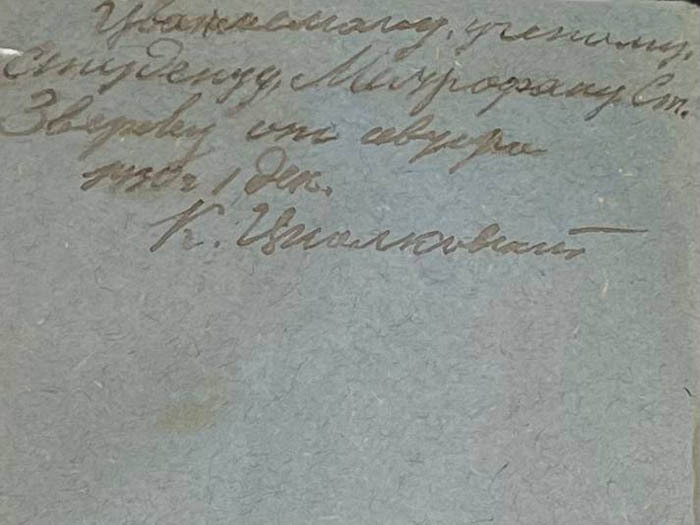 Уважаемому, ученому,
студенту, Митрофану Ст.
Звереву от автора
1930 г 1 дек.
К. Циолковский